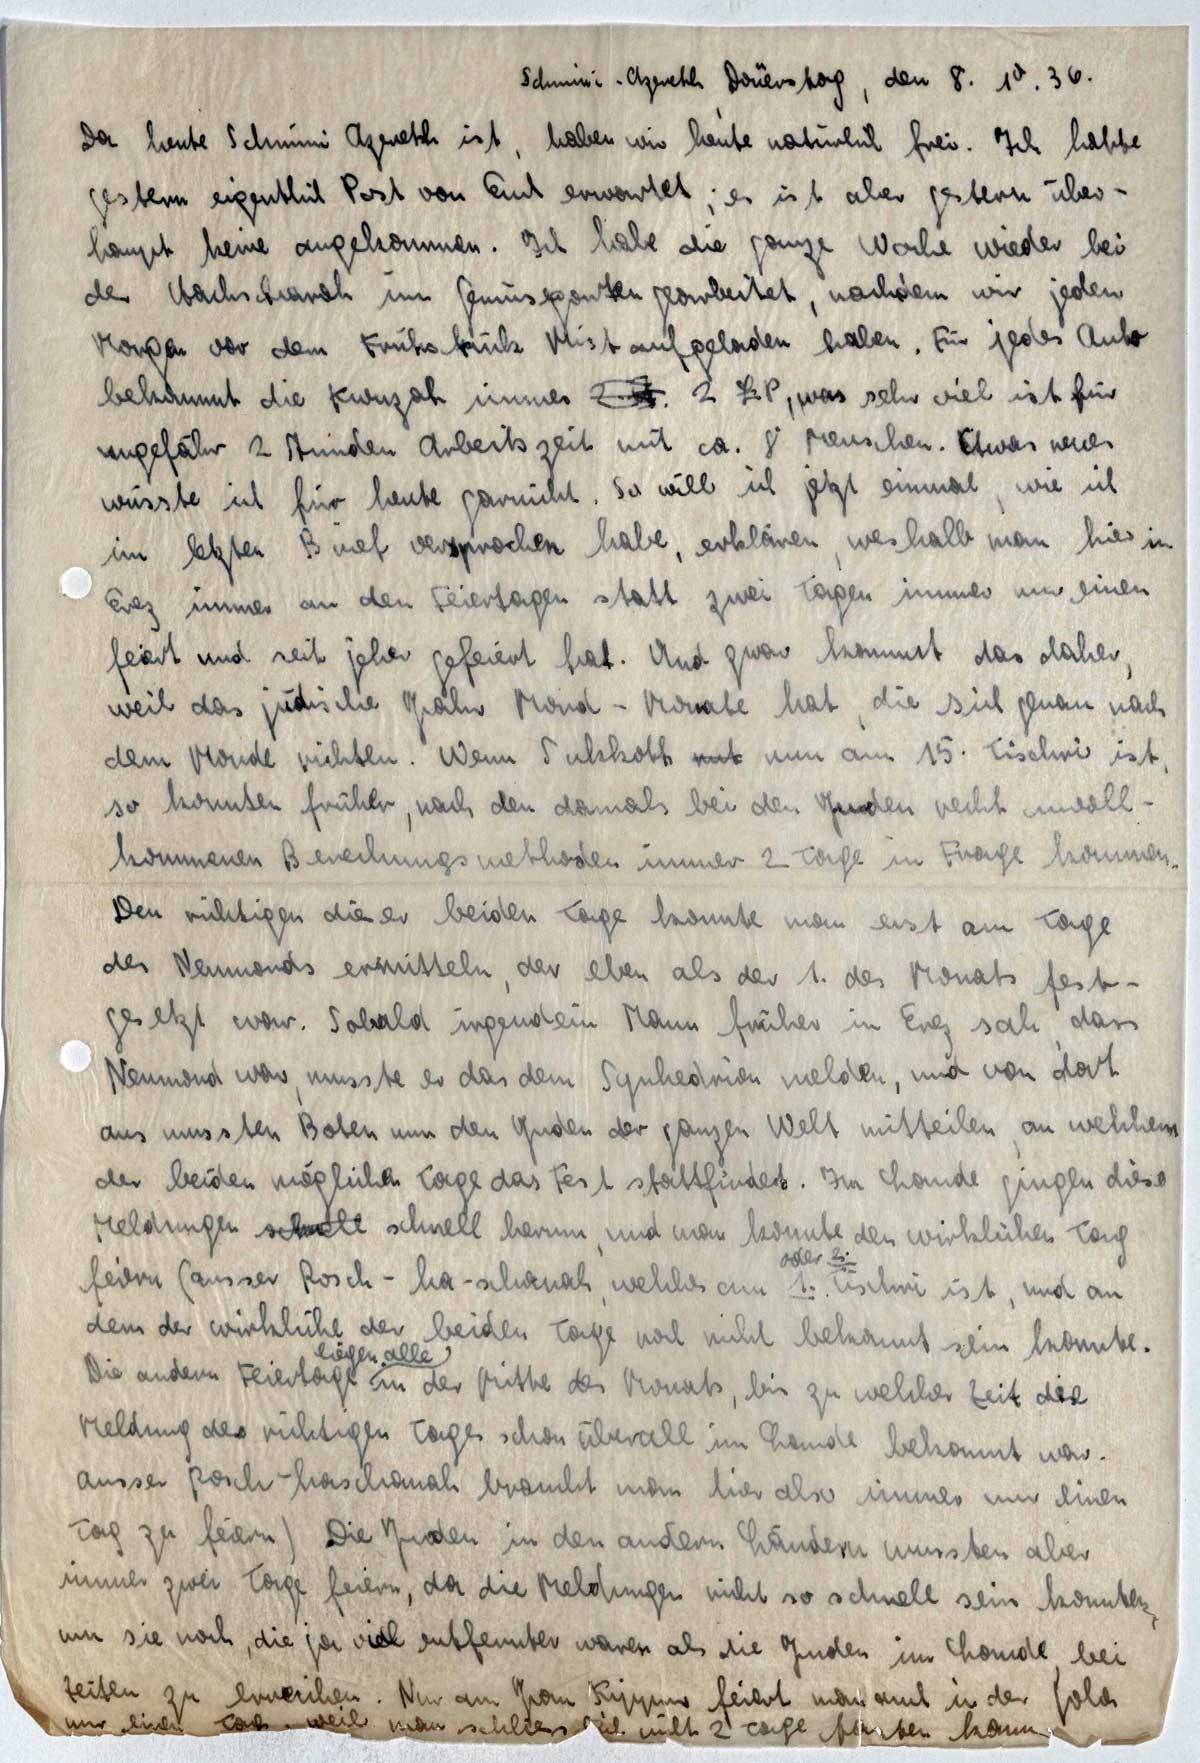 Schmini-Azereth, Donerstag, den 8. 10. 36.
Da heute Schmini Azereth ist, haben wir heute natürlich frei. Ich hatte
gestern eigentlich Post von Euch erwartet; es ist aber gestern über-
haupt keine angekommen. Ich habe die ganze Woche wieder bei
der Hachscharah im Gemüsegarten gearbeitet, nachdem wir jeden
Morgen vor dem Frühstück Mist aufgeladen haben. Für jedes Auto
bekommt die Kwuzah immer 2 P, was sehr viel ist für
ungefähr 2 Stunden Arbeitszeit mit ca. 8 Menschen. Etwas neues
wüsste ich für heute garnicht. So will ich jetzt einmal, wie ich
im letzten Brief versprochen habe, erklären, weshalb man hier in
Erez immer an den Feiertagen statt zwei Tagen immer nur einen
feiert und seit jeher gefeiert hat. Und zwar kommt das daher,
weil das jüdische Jahr Mond-Monate hat, die sich genau nach
dem Monde richten. Wenn Sukkoth nun am 15. Tischri ist,
so konnten früher, nach den damals bei den Juden recht unvoll-
kommenen Berechungsmethoden immer 2 Tage in Frage kommen.
Den richtigen dieser beiden Tage konnte man erst am Tage
des Neumonds ermitteln, der eben als der 1. des Monats fest-
gesetzt war. Sobald irgendein Mann früher in Erez sah, dass
Neumond war, musste er das dem Synhedrion melden, und von dort
aus mussten Boten nun den Juden der ganzen Welt mitteilen, an welchem
der beiden möglichen Tage das Fest stattfindet. Im Lande gingen diese
Meldungen schnell schnell herum, und man konnte den wirklichen Tag
feiern (ausser Rosch-ha-schanah, welches am 1. oder 2. Tischri ist, und an
dem der wirkliche der beiden Tage noch nicht bekannt sein konnte.
Die andern Feiertage liegen alle in der Mitte des Monats, bis zu welcher Zeit die
Meldung des richtigen Tages schon überall im Lande bekannt war.
ausser Rosch-haschanah braucht man hier also immer nur einen
Tag zu feiern) Die Juden in den andern Ländern mussten aber
immer zwei Tage feiern, da die Meldungen nicht so schnell sein konnten,
um sie noch, die ja viel entfernter waren als die Juden im Lande, bei
zeiten zu erreichen. Nur am Jom Kippur feiert man auch in der Golah
nur einen Tag, weil man schliesslich nicht 2 Tage fasten kann